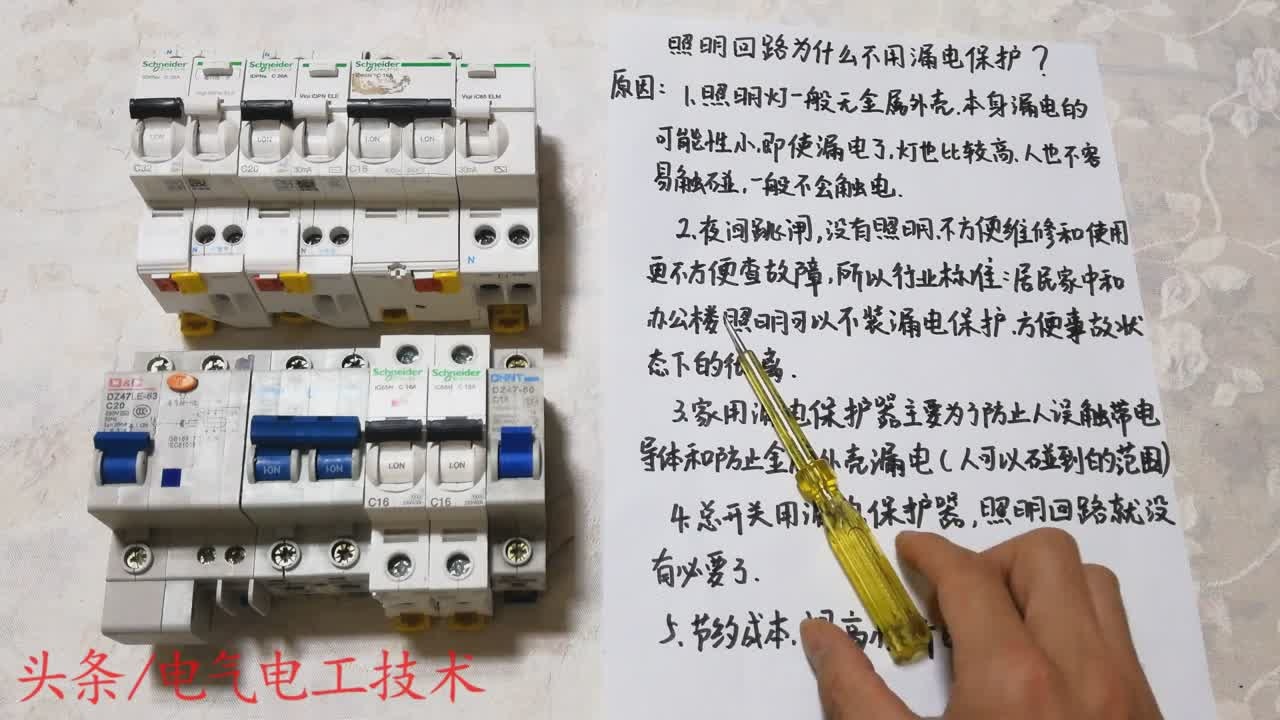 照明回路为什么不用漏电保护？
原因：1.照明灯一般无金属外壳.本身漏电的
可能性小.即使漏电了,灯也比较高、人也不容
易触碰,一般不会触电.
2.夜间跳闸,没有照明.不方便维修和使用
更不方便查故障.所以行业标准：居民家中和
办公楼照明可以不装漏电保护.方便事故状
态下的
3.家用漏电保护器主要为了防止人误触带电
导体和防止金属外壳漏电(人可以碰到的范围)
4.总开关用漏电保护器,照明回路就没
有必要了.
5.节约成本.
Schneider
Schneider
Schneider
C 20A
C 16A
Vigi iDPN ELE
Vigi iC65 ELM
I.ON
I.ON
I.ON
I.ON
C32
C20
30mA
C16
30mA
N
N
N
DZ47LE-63
C20
Schneider
iC65N C 16A
Schneider
iC65N C 16A
CHNT
DZ47-60
I·ON
I·ON
I.ON
I.ON
C16
C16
头条/电气电工技术